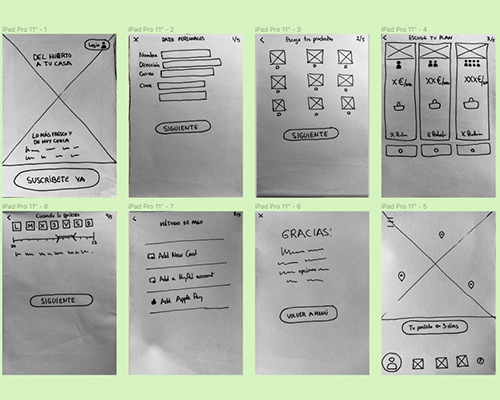 iPad Pro 11" - 1
Login
DEL HUERTO
A TU CASA
LO MÁS FRESCO Y
DE MUY CERCA
SUSCRÍBETE YA
iPad Pro 11" - 2
DATOS PERSONALES
1/5
Nombre
Dirección
Correo
Clave
SIGUIENTE
iPad Pro 11" - 3
Escoge tus productos
2/5
SIGUIENTE
iPad Pro 11" - 4
ESCOGE TU PLAN
3/5
X€/
XX€/
XXX€/
iPad Pro 11" - 8
Cuando lo quieres
4/5
L M X J V S D
SIGUIENTE
iPad Pro 11" - 7
MÉTODO DE PAGO
5/5
Add New Card
Add a PayPal account
Add Apple Pay
iPad Pro 11" - 6
GRACIAS!
VOLVER A MENÚ
iPad Pro 11" - 5
Tu pedido en 3 días